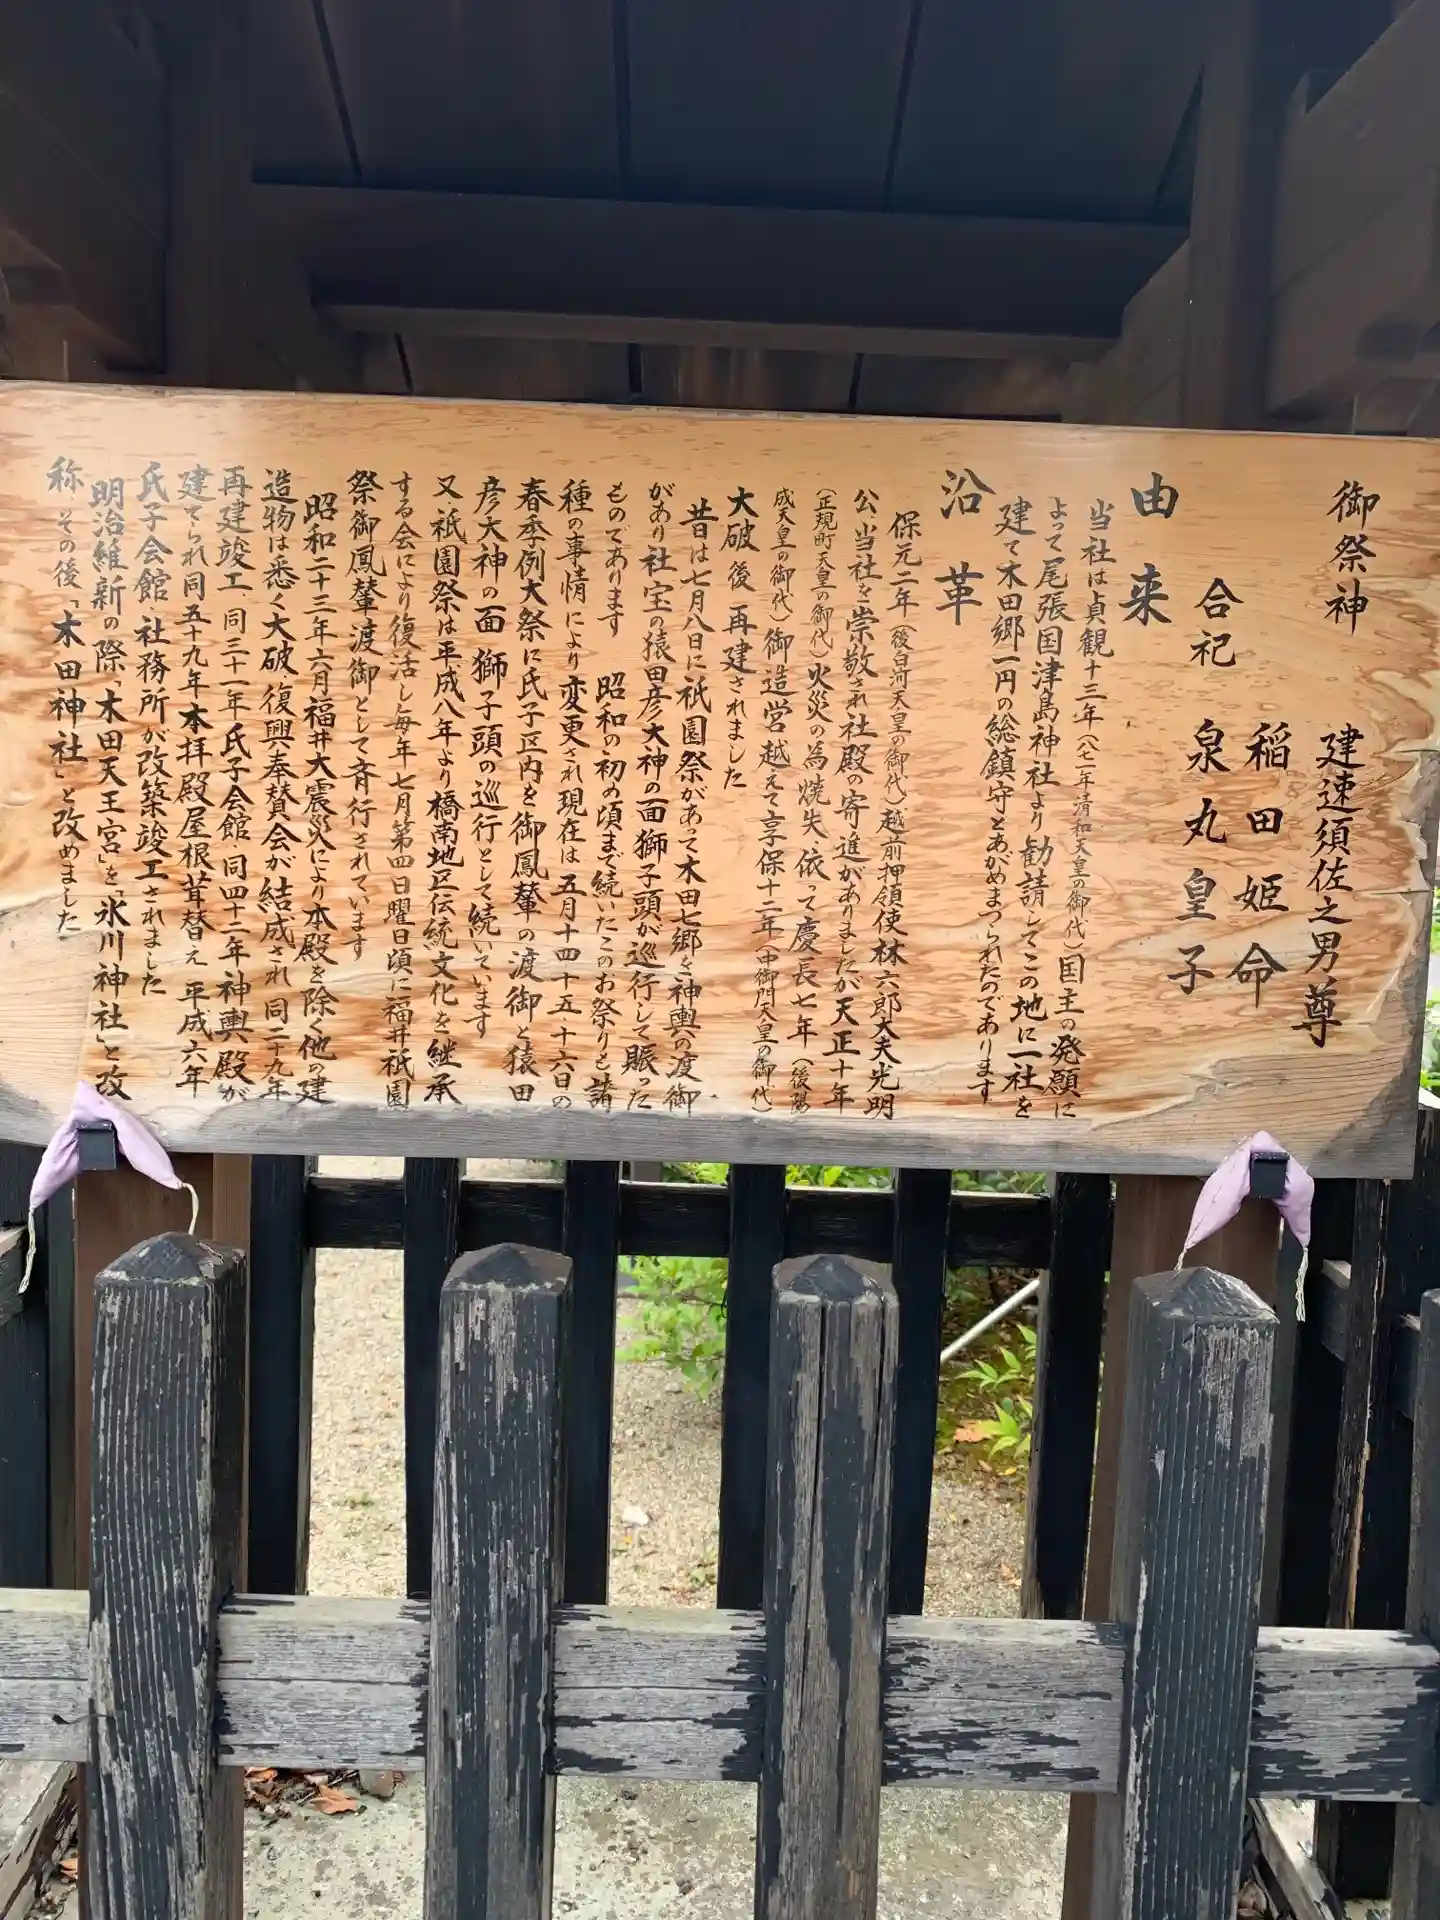 御祭神
建速須佐之男尊
稲田姫命
合祀
泉丸皇子
由来
当社は貞観十三年(八七一年清和天皇の御代)国主の発願に
よって尾張国津島神社より勧請してこの地に一社を
建て木田郷一円の総鎮守とあがめまつられたのであります
沿革
保元二年(後白河天皇の御代)越前押領使林六郎大夫光明
公当社を崇敬され社殿の寄進がありましたが天正十年
(正規町天皇の御代)火災の為焼失、依って慶長七年(後陽
成天皇の御代)御造営越えて享保十二年(中御門天皇の御代)
大破後 再建されました
昔は七月八日に祇園祭があって木田七郷を神輿の渡御
があり社宝の猿田彦大神の面獅子頭が巡行して賑った
ものであります 昭和の初め頃まで続いたこのお祭りも諸
種の事情により変更され現在は五月十四十五十六日の
春季例大祭に氏子区内を御鳳輦の渡御と猿田
彦大神の面獅子頭の巡行として続いています
又祇園祭は平成八年より橋南地区伝統文化を継承
する会により復活し毎年七月第四日曜日頃に福井祇園
祭御鳳輦渡御として斉行されています
昭和二十三年六月福井大震災により本殿を除く他の建
造物は悉く大破、復興奉賛会が結成され 同二十九年
再建竣工、同三十一年氏子会館、同四十二年神輿殿が
建てられ同五十九年本拝殿屋根葺替え 平成六年
氏子会館、社務所が改築竣工されました
明治維新の際「木田天王宮」を「氷川神社」と改
称 その後「木田神社」と改めました